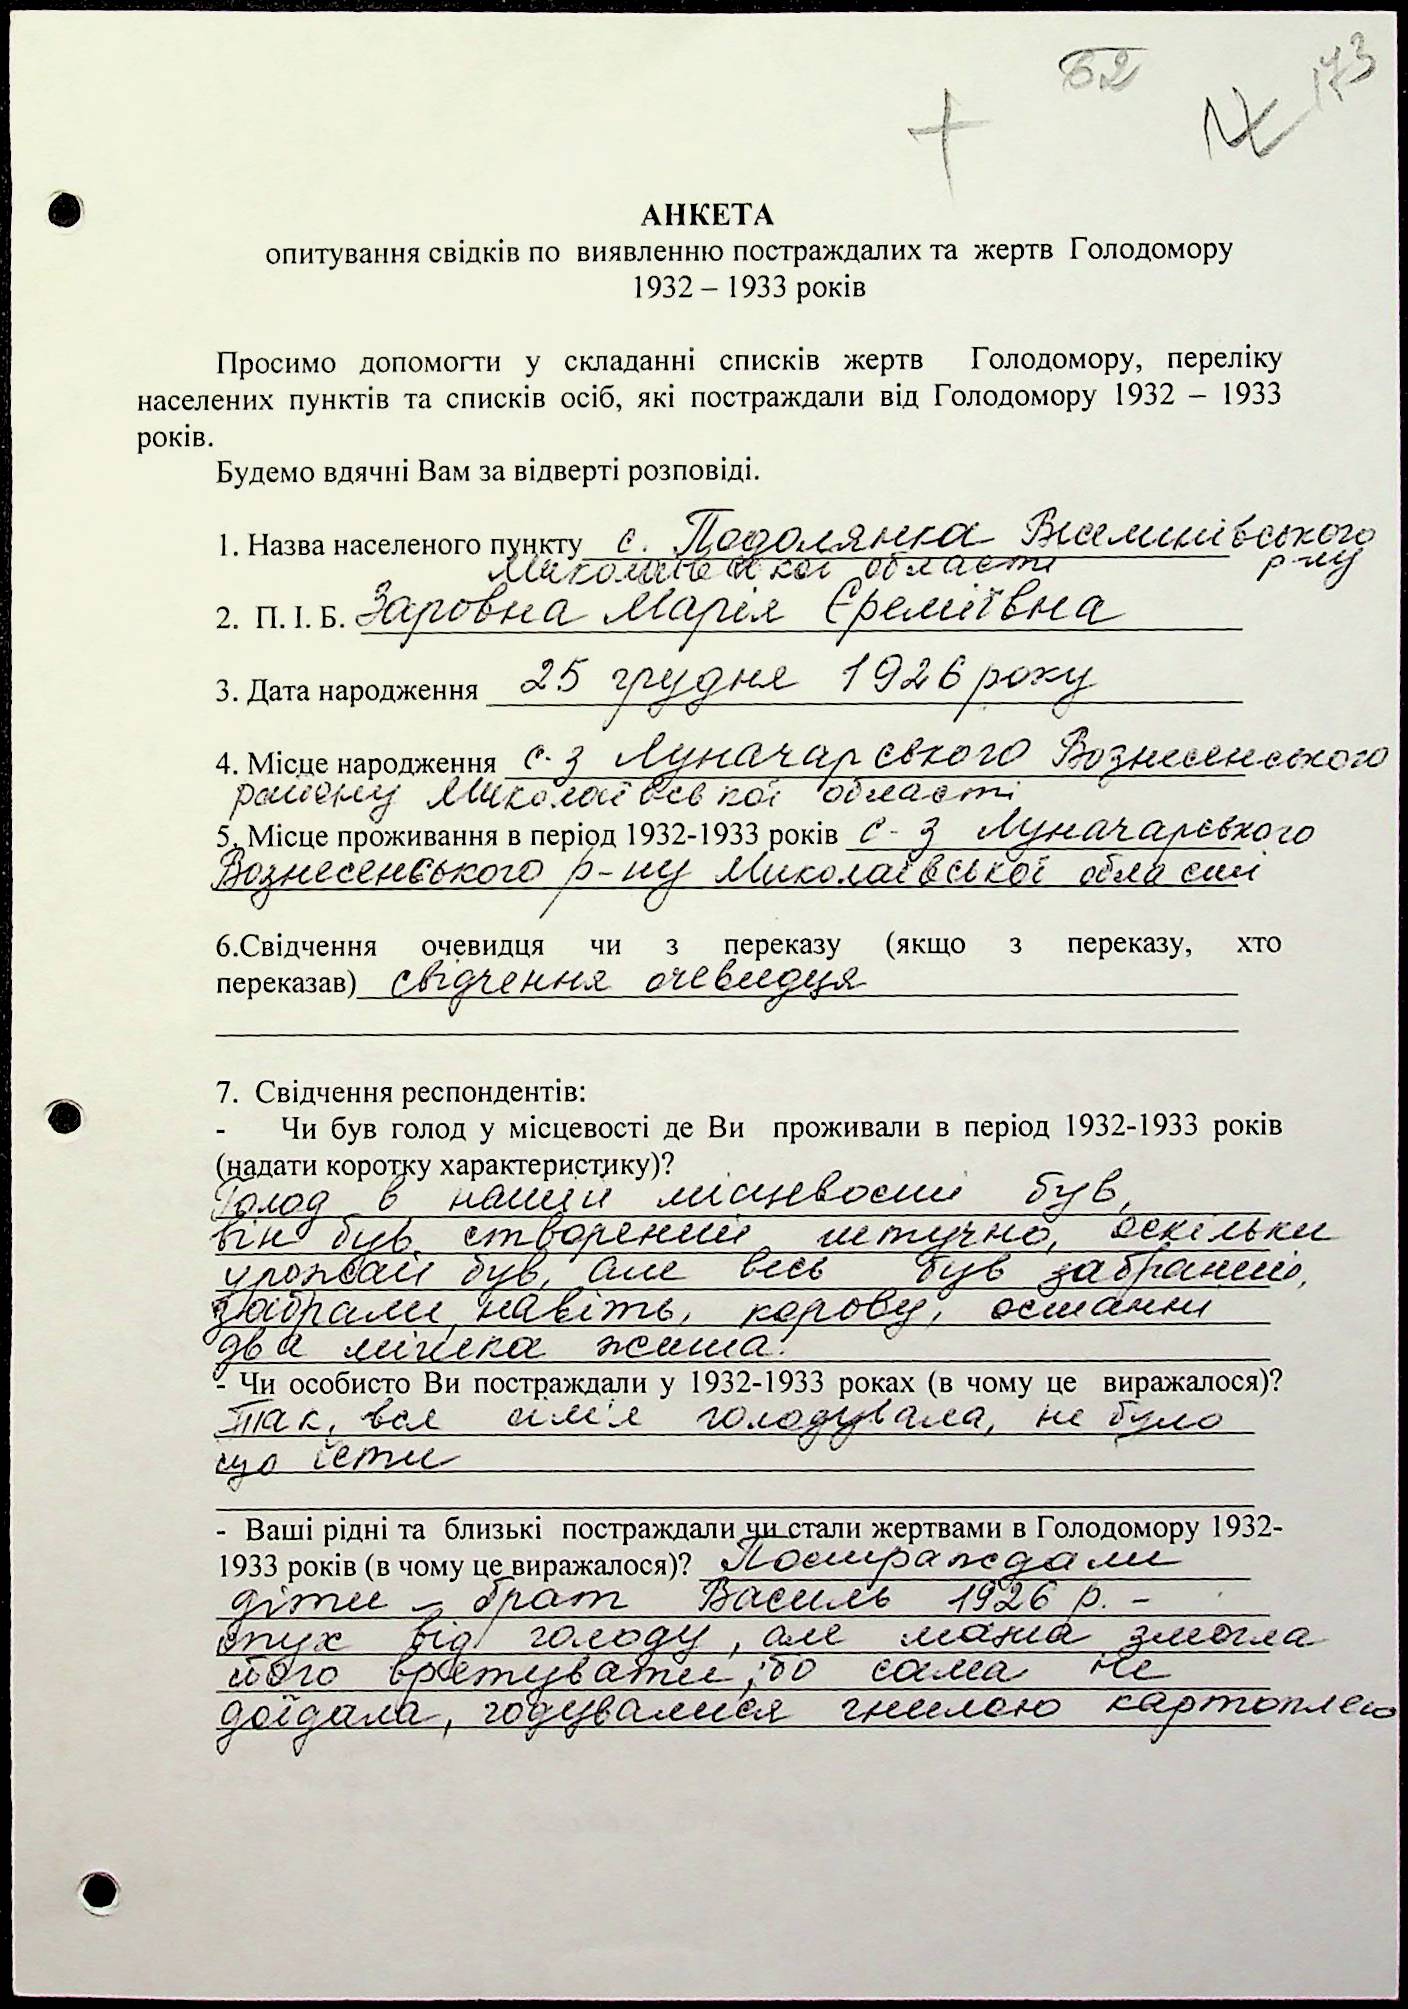 173
АНКЕТА
опитування свідків по виявленню постраждалих та жертв Голодомору
1932 – 1933 років
Просимо допомогти у складанні списків жертв Голодомору, переліку
населених пунктів та списків осіб, які постраждали від Голодомору 1932 – 1933
років.
Будемо вдячні Вам за відверті розповіді.
1. Назва населеного пункту с. Подолянка
Миколаївської області р-ну
2. П. І. Б. Заровна Марія Єреміївна
3. Дата народження 25 грудня 1926 року
4. Місце народження с-з Луначарського Вознесенського
району Миколаївської області
5. Місце проживання в період 1932-1933 років с-з Луначарського
Вознесенського р-ну Миколаївської області
6.Свідчення очевидця чи з переказу (якщо з переказу, хто
переказав) свідчення очевидця
7. Свідчення респондентів:
- Чи був голод у місцевості де Ви проживали в період 1932-1933 років
(надати коротку характеристику)?
Голод в нашій місцевості був,
він був створений штучно, оскільки
урожай був, але весь був забраний,
забрали навіть, корову, останні
два мішка жита.
- Чи особисто Ви постраждали у 1932-1933 роках (в чому це виражалося)?
Так, вся сім'я голодувала, не було
що їсти
- Ваші рідні та близькі постраждали чи стали жертвами в Голодомору 1932-
1933 років (в чому це виражалося)? Постраждали
діти – брат Василь 1926 р. –
опух від голоду, але мама змогла
його врятувати, бо сама не
доїдала, годувалися гнилою картоплею